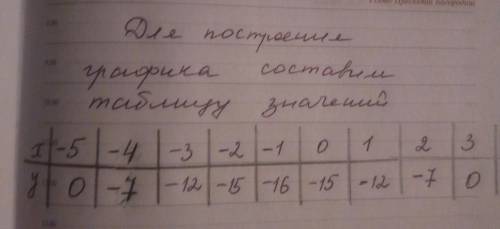 Для построения
графика составим
таблицу значений
x -5 -4 -3 -2 -1 0 1 2 3
y 0 -7 -12 -15 -16 -15 -12 -7 0